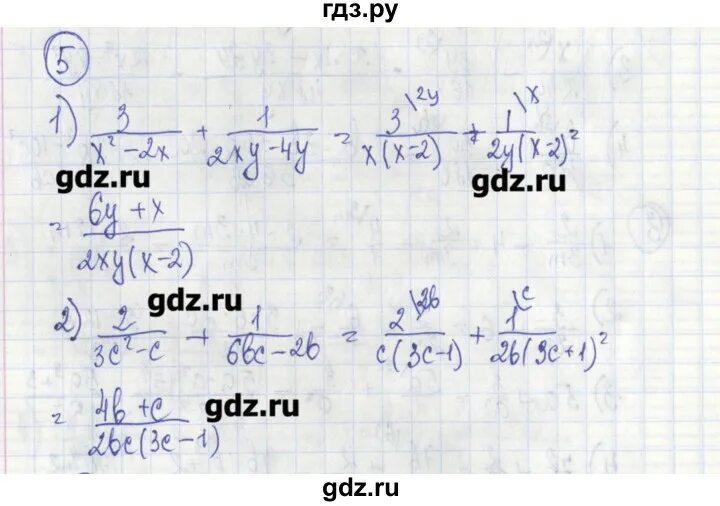 гдз.ру
5
1) 3/(x² - 2x) + 1/(2xy - 4y) = 3\2y/(x(x-2)) + 1\x/(2y(x-2)) =
gdz.ru
gdz.ru
= (6y + x)/(2xy(x-2))
gdz.ru
2) 2/(3c² - c) + 1/(6bc - 2b) = 2\2b/(c(3c-1)) + 1\c/(2b(3c+1)) =
= (4b + c)/(2bc(3c-1))
gdz.ru
gdz.ru